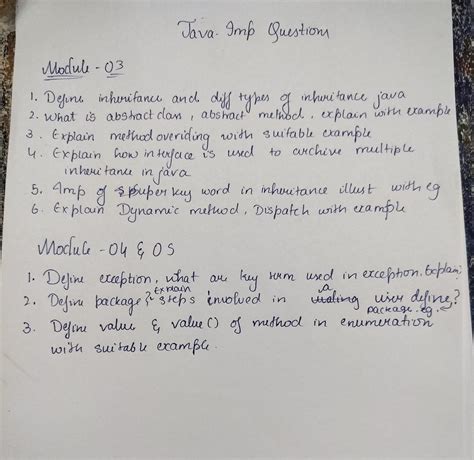 Java - Imp Questions
Module - 03
1. Define inheritance and diff types of inheritance java
2. What is abstract class, abstract method, explain with example
3. Explain method overiding with suitable example
4. Explain how interface is used to archive multiple
inheritance in java
5. Imp of super key word in inheritance illust with eg
6. Explain Dynamic method, Dispatch with example
Module - 04 & 05
1. Define exception, what are key term used in exception. Explain;
2. Define package? explain steps involved in a user define?
package. eg.
3. Define value & value() of method in enumeration
with suitable example.